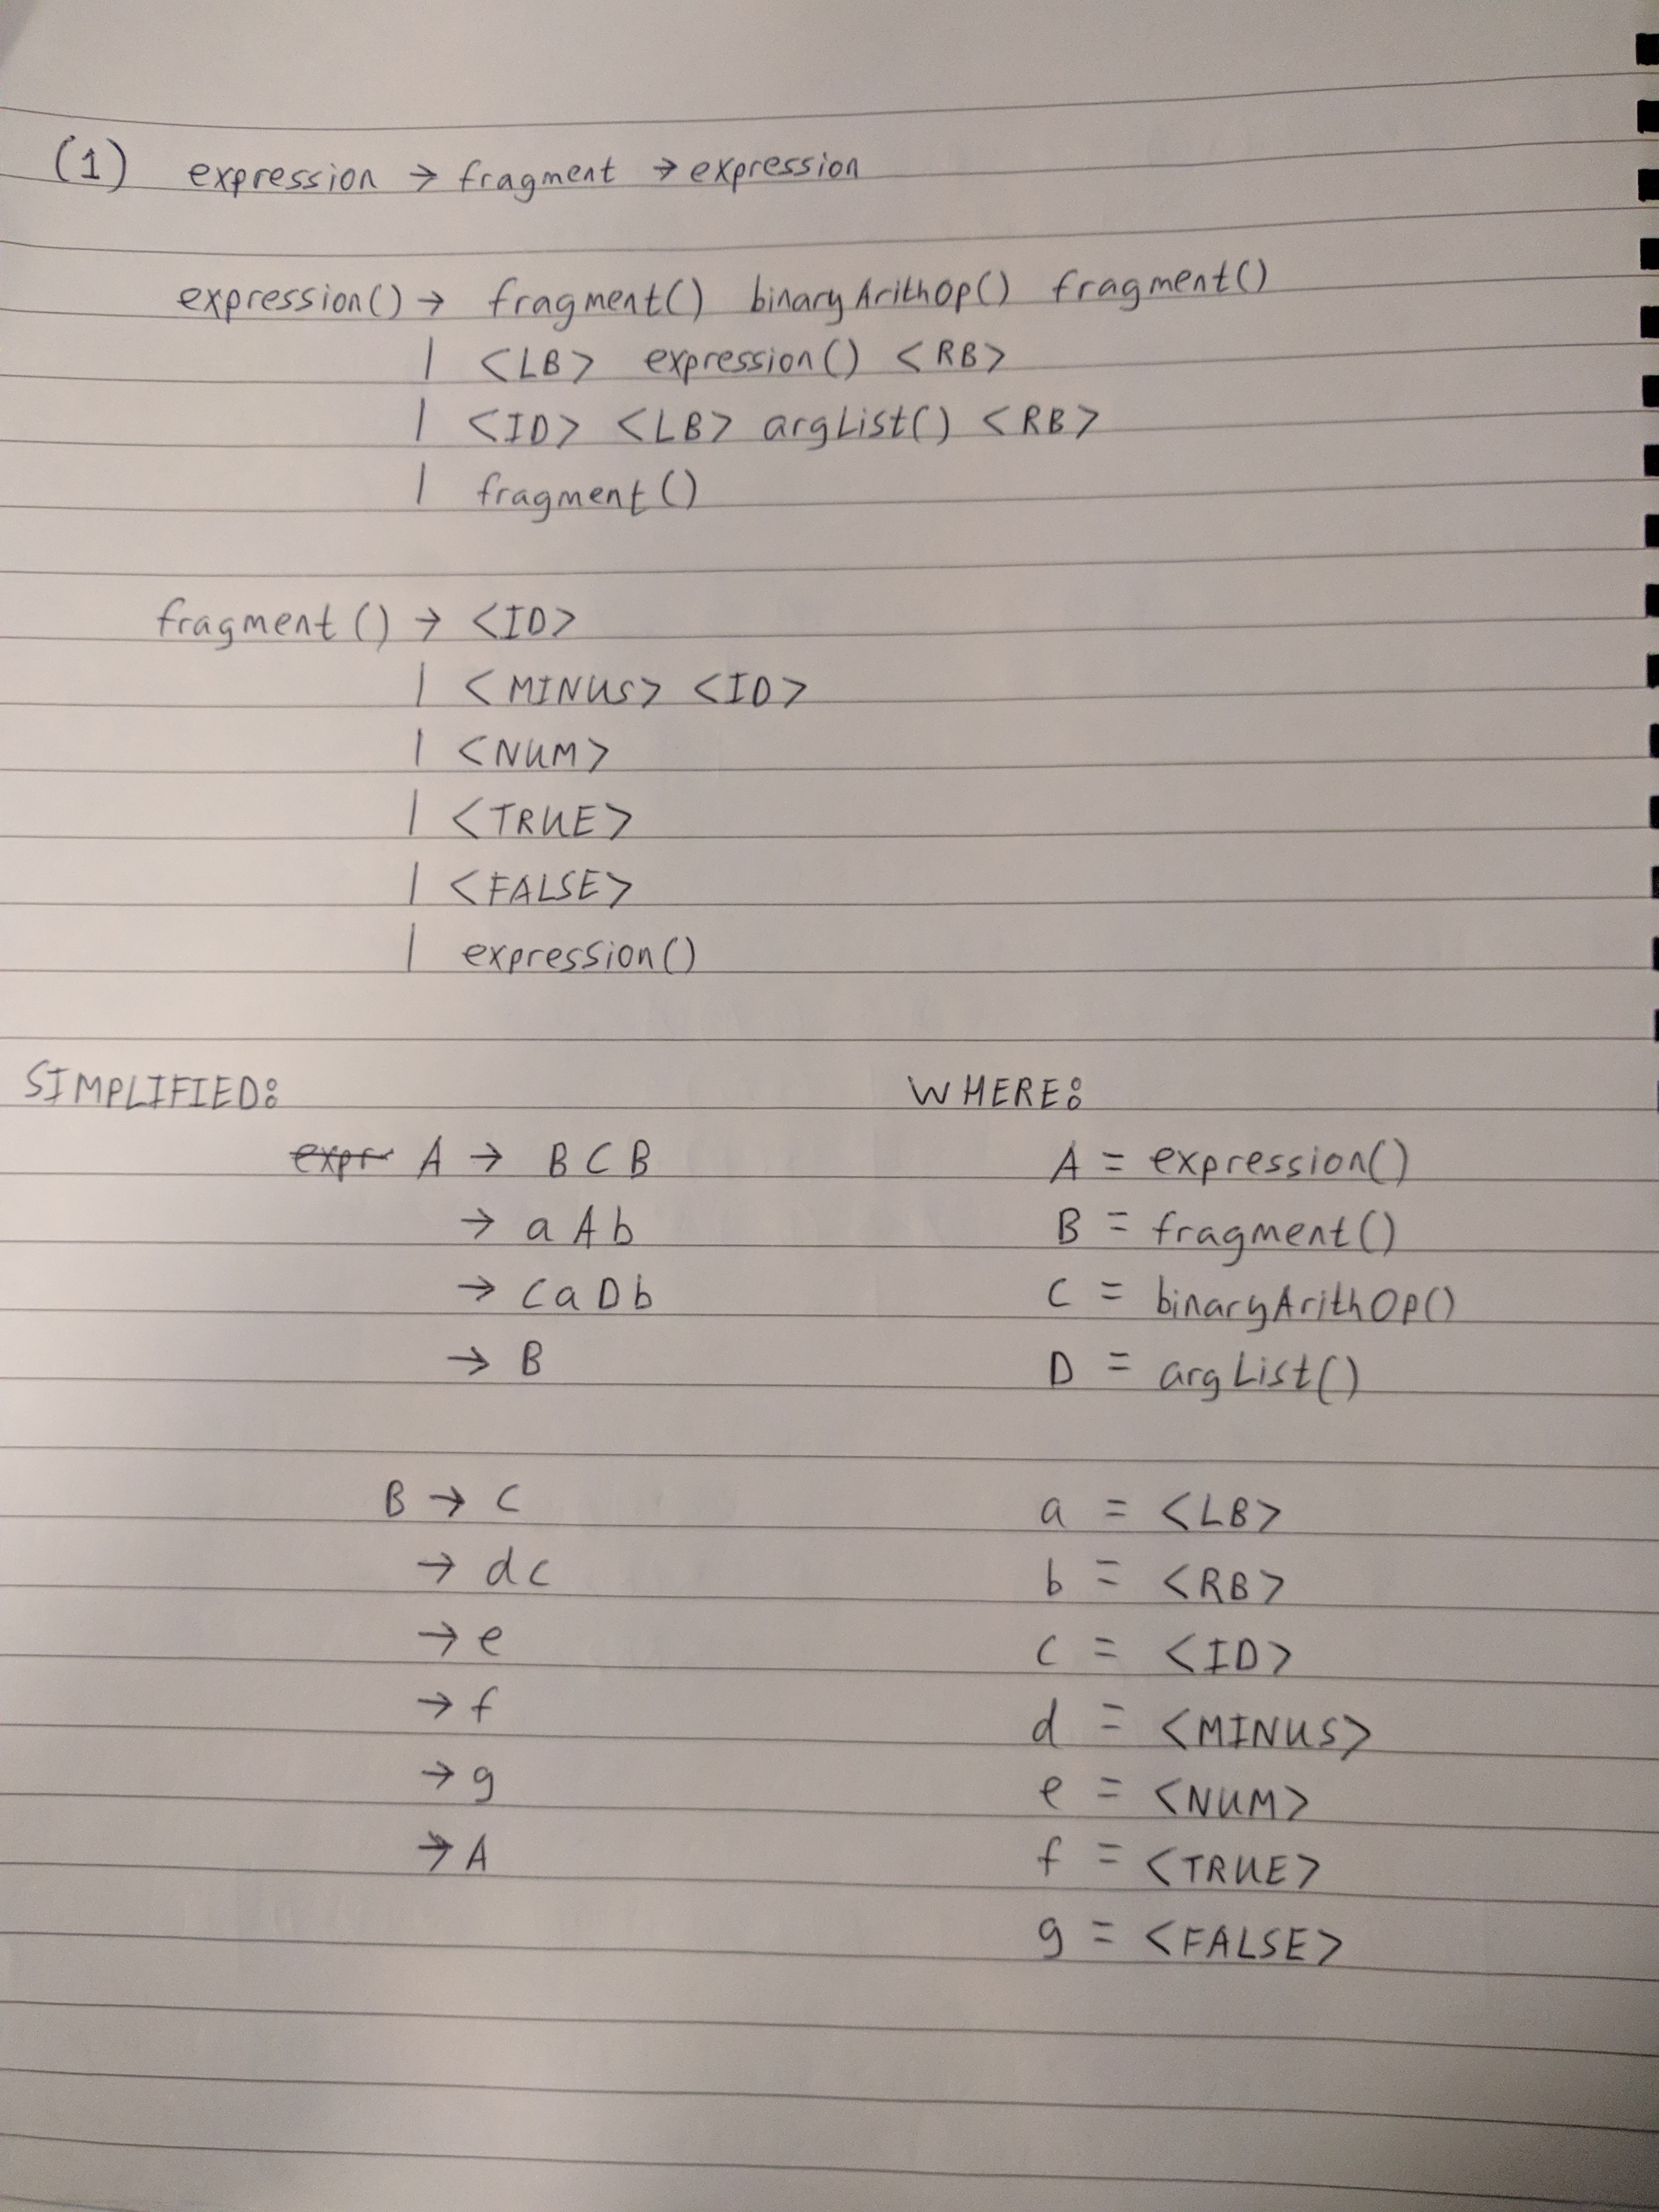 (1) expression → fragment → expression
expression() → fragment() binaryArithOp() fragment()
| <LB> expression() <RB>
| <ID> <LB> argList() <RB>
| fragment()
fragment() → <ID>
| <MINUS> <ID>
| <NUM>
| <TRUE>
| <FALSE>
| expression()
SIMPLIFIED: WHERE:
expr A → B C B A = expression()
→ a A b B = fragment()
→ c a D b C = binaryArithOp()
→ B D = argList()
B → c a = <LB>
→ d c b = <RB>
→ e c = <ID>
→ f d = <MINUS>
→ g e = <NUM>
→ A f = <TRUE>
g = <FALSE>